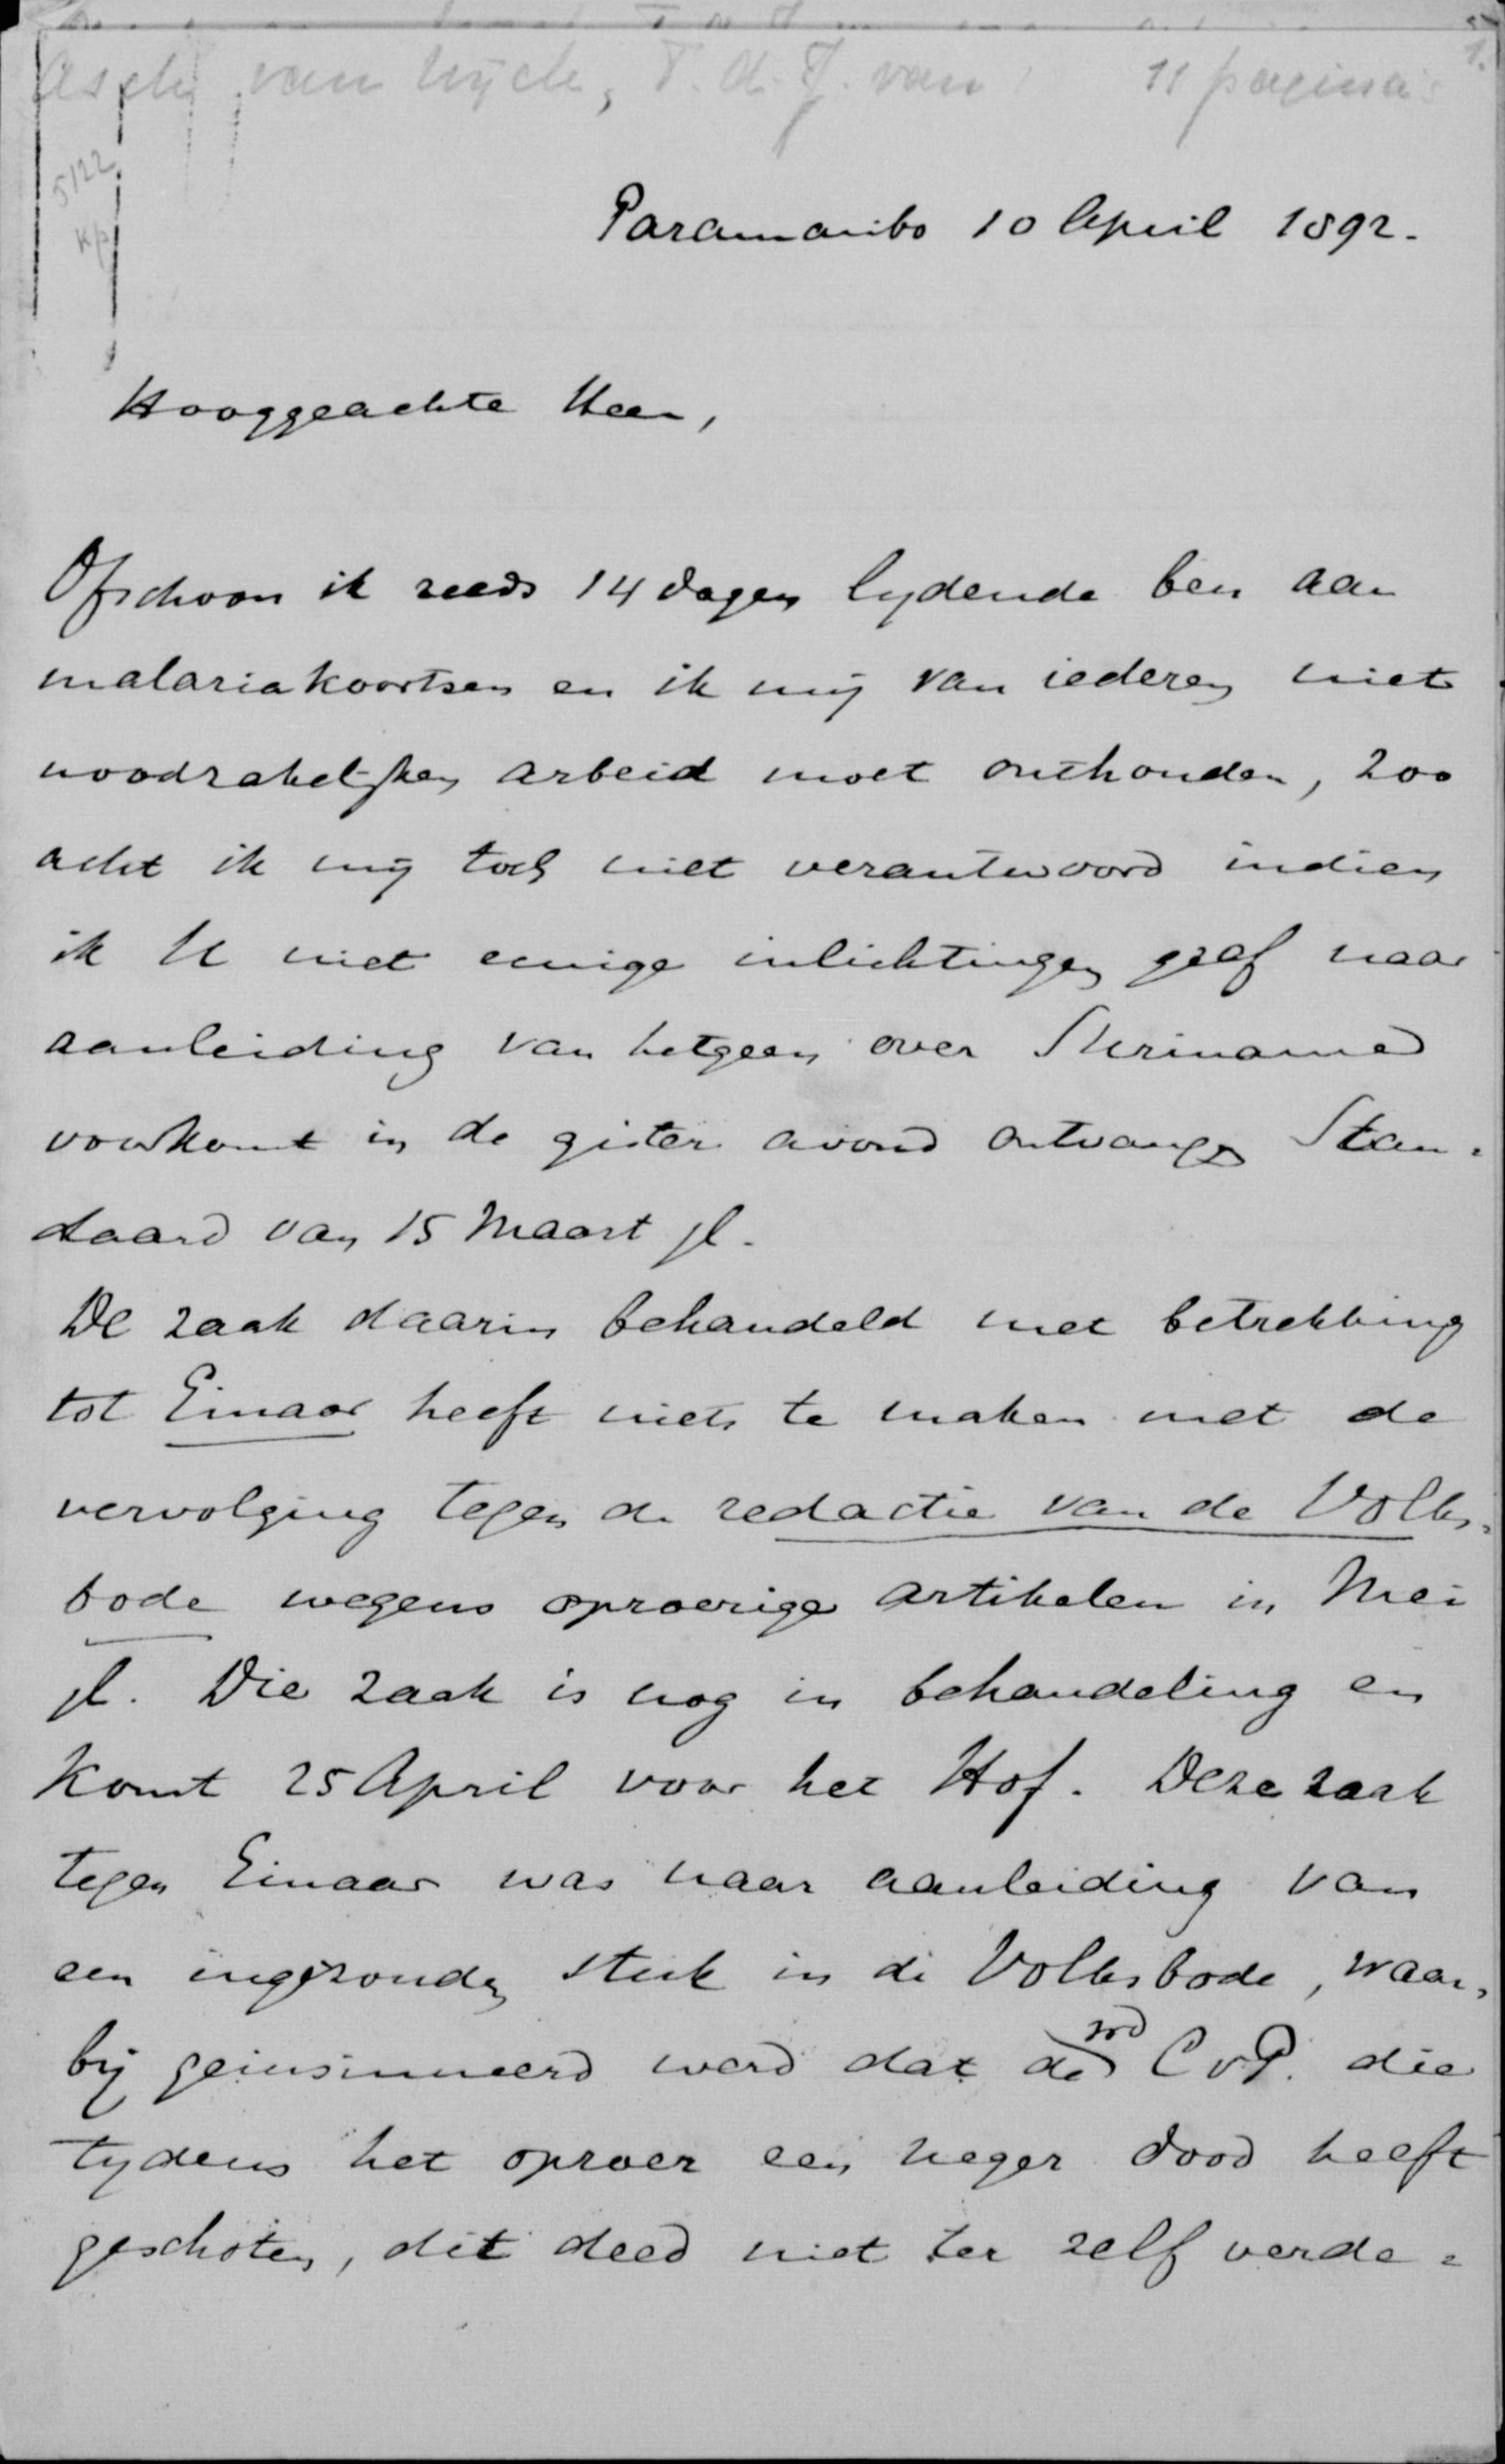 Asch van Wijck, T. A. J. van 11 pagina's
1.
5122
kp
Paramaribo 10 April 1892.
Hooggeachte Heer,
Ofschoon ik reeds 14 dagen lydende ben aan
malariakoortsen en ik mij van iederen niet
noodzakelijken arbeid moet onthouden, zoo
acht ik mij toch niet verantwoord indien
ik U niet eenige inlichtingen geef naar
aanleiding van hetgeen over Suriname
voorkomt in de gister avond ontvangen Stan=
daard van 15 Maart jl.
De zaak daarin behandeld met betrekking
tot Einaar heeft niets te maken met de
vervolging tegen de redactie van de Volks=
bode wegens oproerige artikelen in Mei
jl. Die zaak is nog in behandeling en
komt 25 April voor het Hof. Deze zaak
tegen Einaar was naar aanleiding van
een ingezonden stuk in de Volksbode, waar=
bij geinsinueerd werd dat de C v P. die
tydens het oproer een neger dood heeft
geschoten, dit deed niet ter zelf verde=